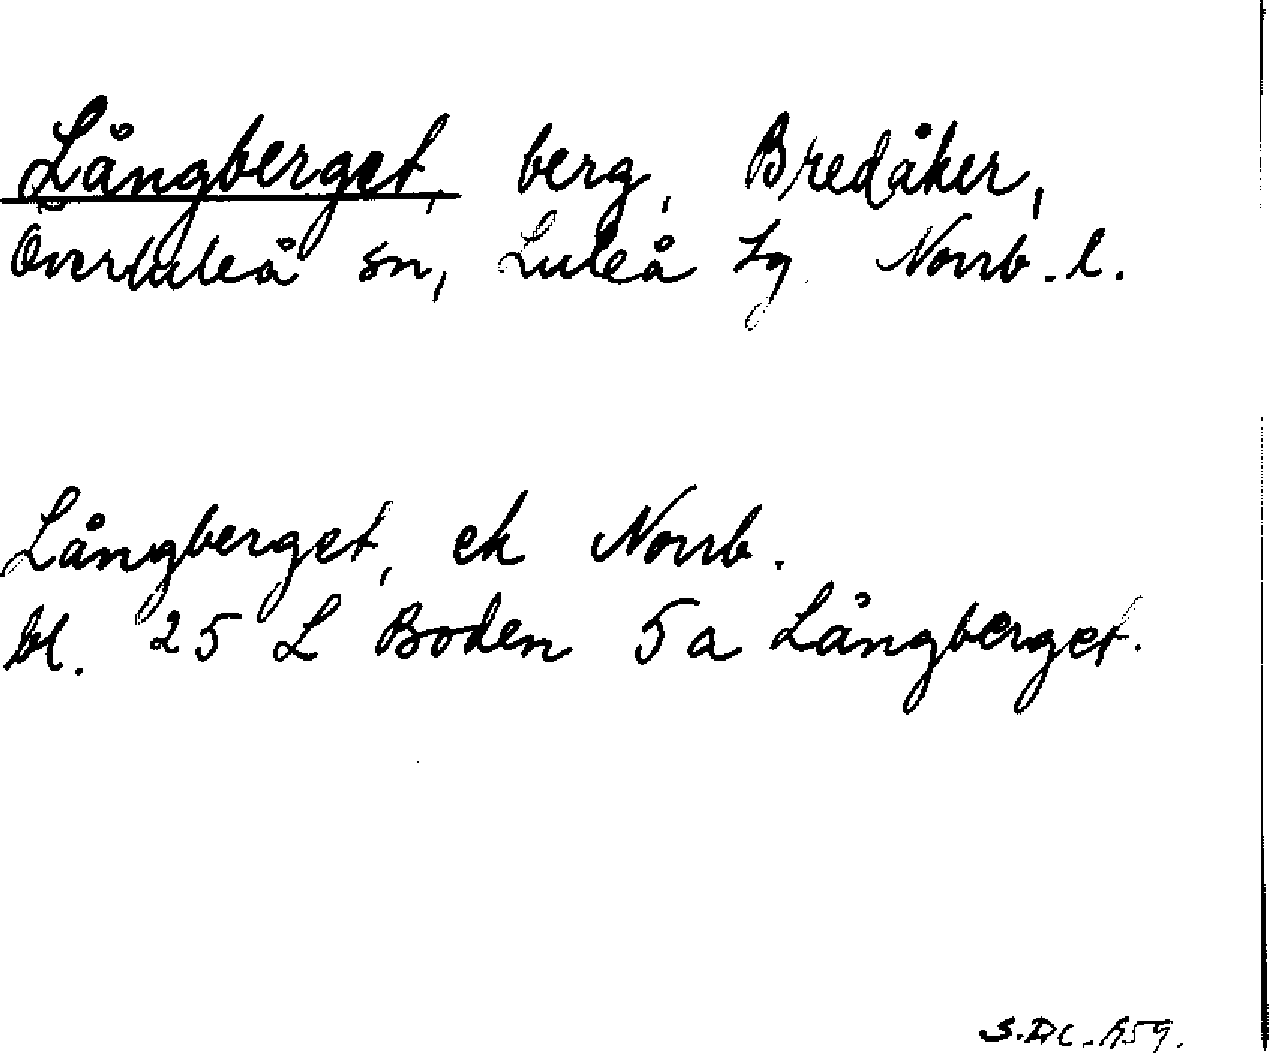 Långberget, berg, Bredåker,
Överluleå sn, Luleå tg. Norrb. l.
Långberget, ek Norrb.
bl. 25 L Boden 5 a Långberget.